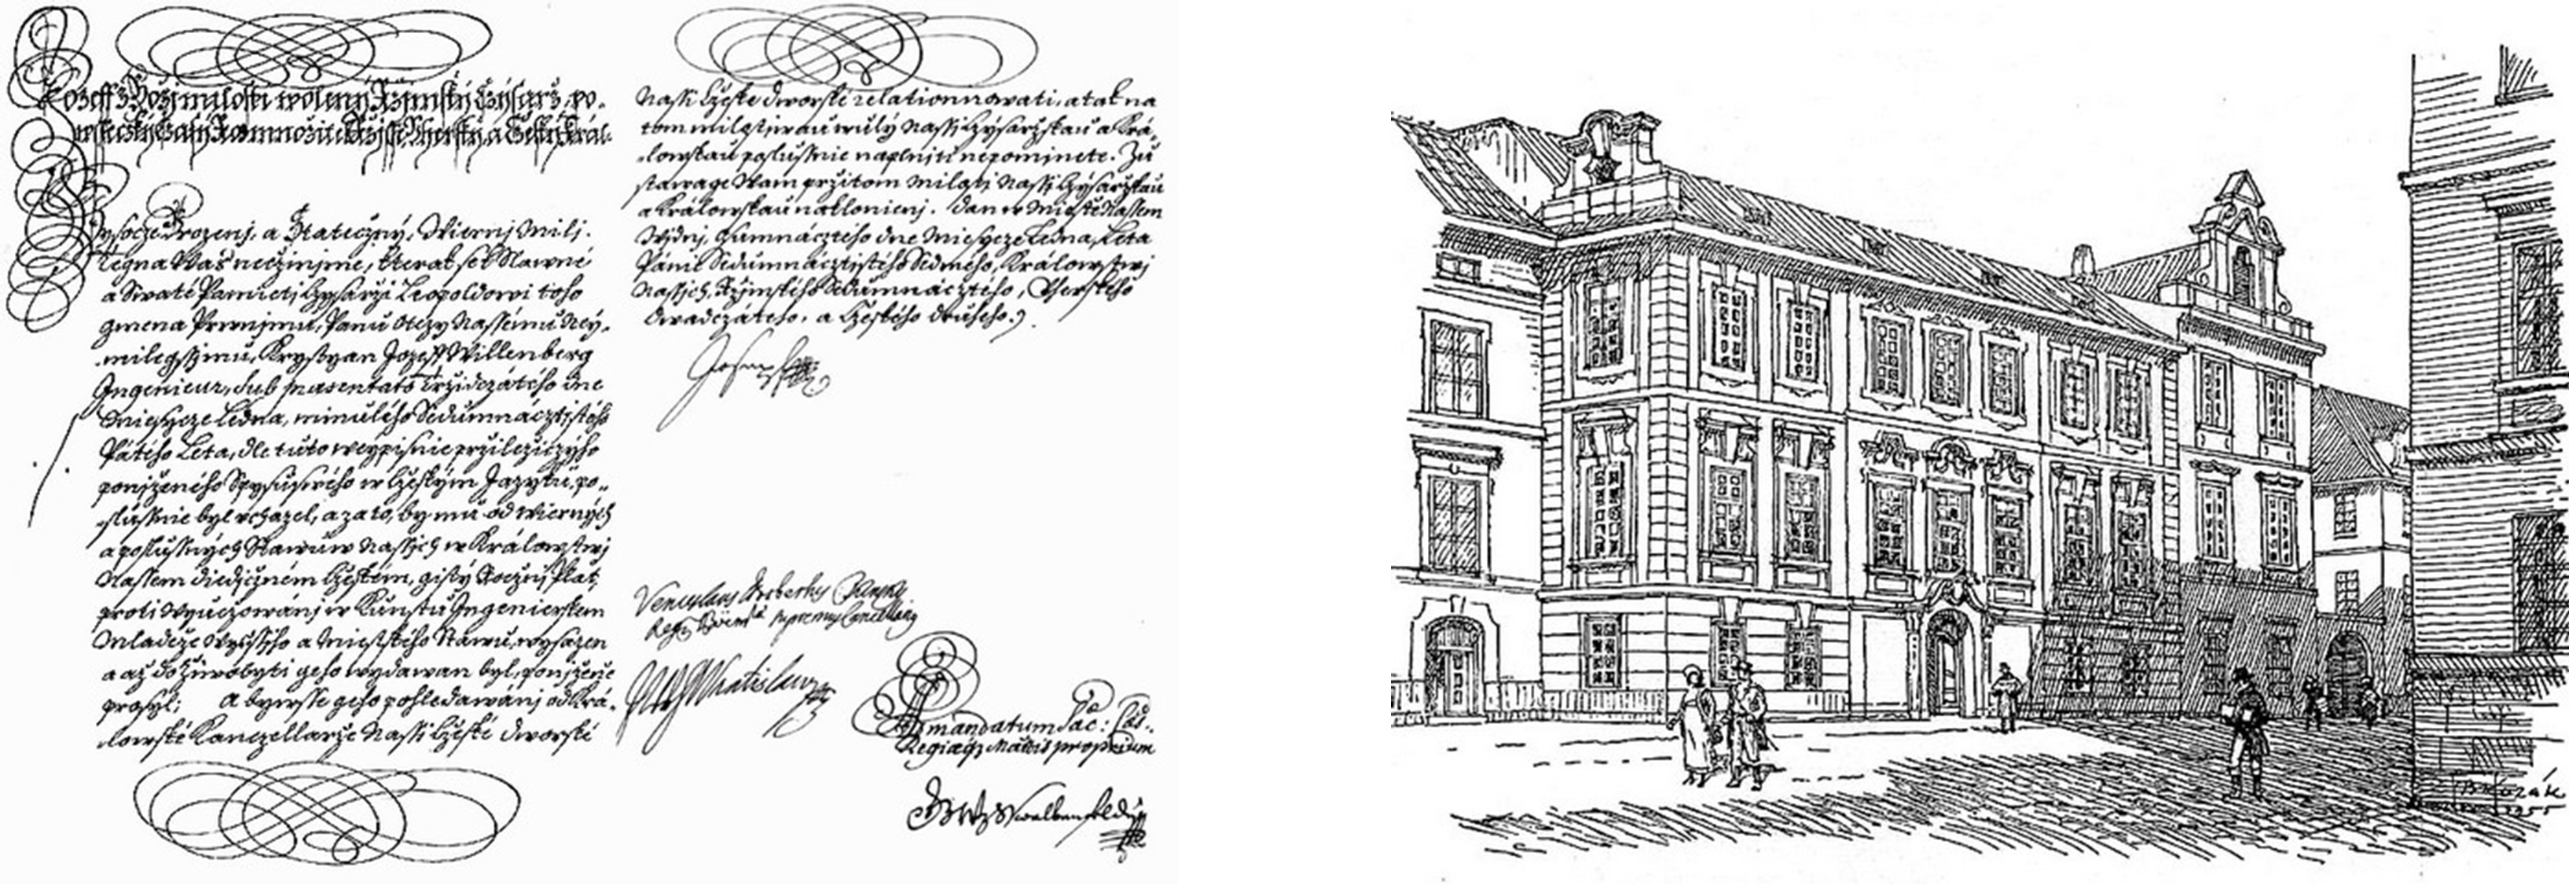 Jozeff z Boži milosti wolenyRžimsky Czysarž, po-
wsseczky Czasy Rozmnožitel Ržisse Uhersky, a Cžesky Král.
Wysocze Urozenj, a Stateczny, Wiernj Milj.
Tegna Was neczinjme, kterak seb Slawné
a Swaté Pamieti Czysarži Leopoldowi toho
gmena Prwnjmu, Panu Otczy Nassemu Ney-
milegssjmu, Krystyan Jozeff Willenberg
Ingenieur, sub praesentato Tržidczátého dne
Miesycze Ledna, minulého Sedumnácztistého
Pátého Leta, dle tuto wegpisnie przileziczyho
ponjženého Spysu swého w Cžeským Jazyku, po-
slussnie byl uchazel, a za to, by mu od wiernych
a poslussných Stawuw Nassých w Králowstwj
Nassem diedicznem Cžeském, gisty Rocznj Plat,
proti wyuczowánj w Kunstu Ingenierskem
Mladeže Wyssiho a Miestského Stawu, wysazen
a až do žiwobyti geho wydawan byl, ponjženie
prosyl; A bywsse geho pohledawánj od Krá-
lowské Kanczellarže Nassi Cžeské Dworské
Nassi Cžeské Dworské relationnowati, a tak na
tom milostiwau wuly Nassi Czysaržskau a Krá-
lowskau poslussnie naplniti nepominete. Zu-
stawage Wam pržitom Milosti Nassi Czysaržskau
a Králowskau naklonienj. Dan w Miestie Nassem
Wjdnj, Osmnácztého dne Miesycze Ledna, Leta
Pánie Sedumnácztistého Sedmého, Králowstwj
Nassjch, Ržjmského Sedumnácztého, Uherského
Dwadczátého, a Cžeského druhého.
Joseph
Venceslaus Norbertus Kinsky
Regis Boemiae supremus Cancellarius
Wratislaw
Ad mandatum Sac: Caes:
Regiaeq Mattis proprium
B Kozák
1955